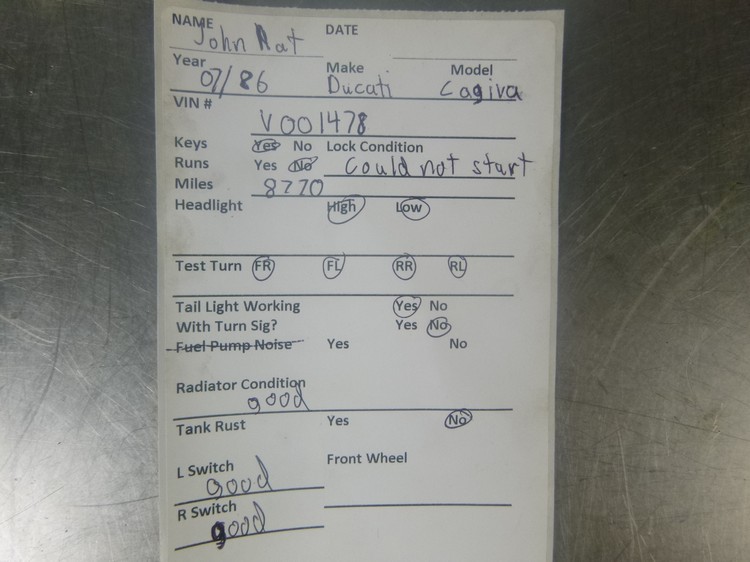 NAME John Rat DATE
Year 07/86 Make Ducati Model Cagiva
VIN # V001478
Keys Yes No Lock Condition
Runs Yes No Could not start
Miles 8770
Headlight High Low
Test Turn FR FL RR RL
Tail Light Working Yes No
With Turn Sig? Yes No
Fuel Pump Noise Yes No
Radiator Condition
good
Tank Rust Yes No
L Switch Front Wheel
good
R Switch
good